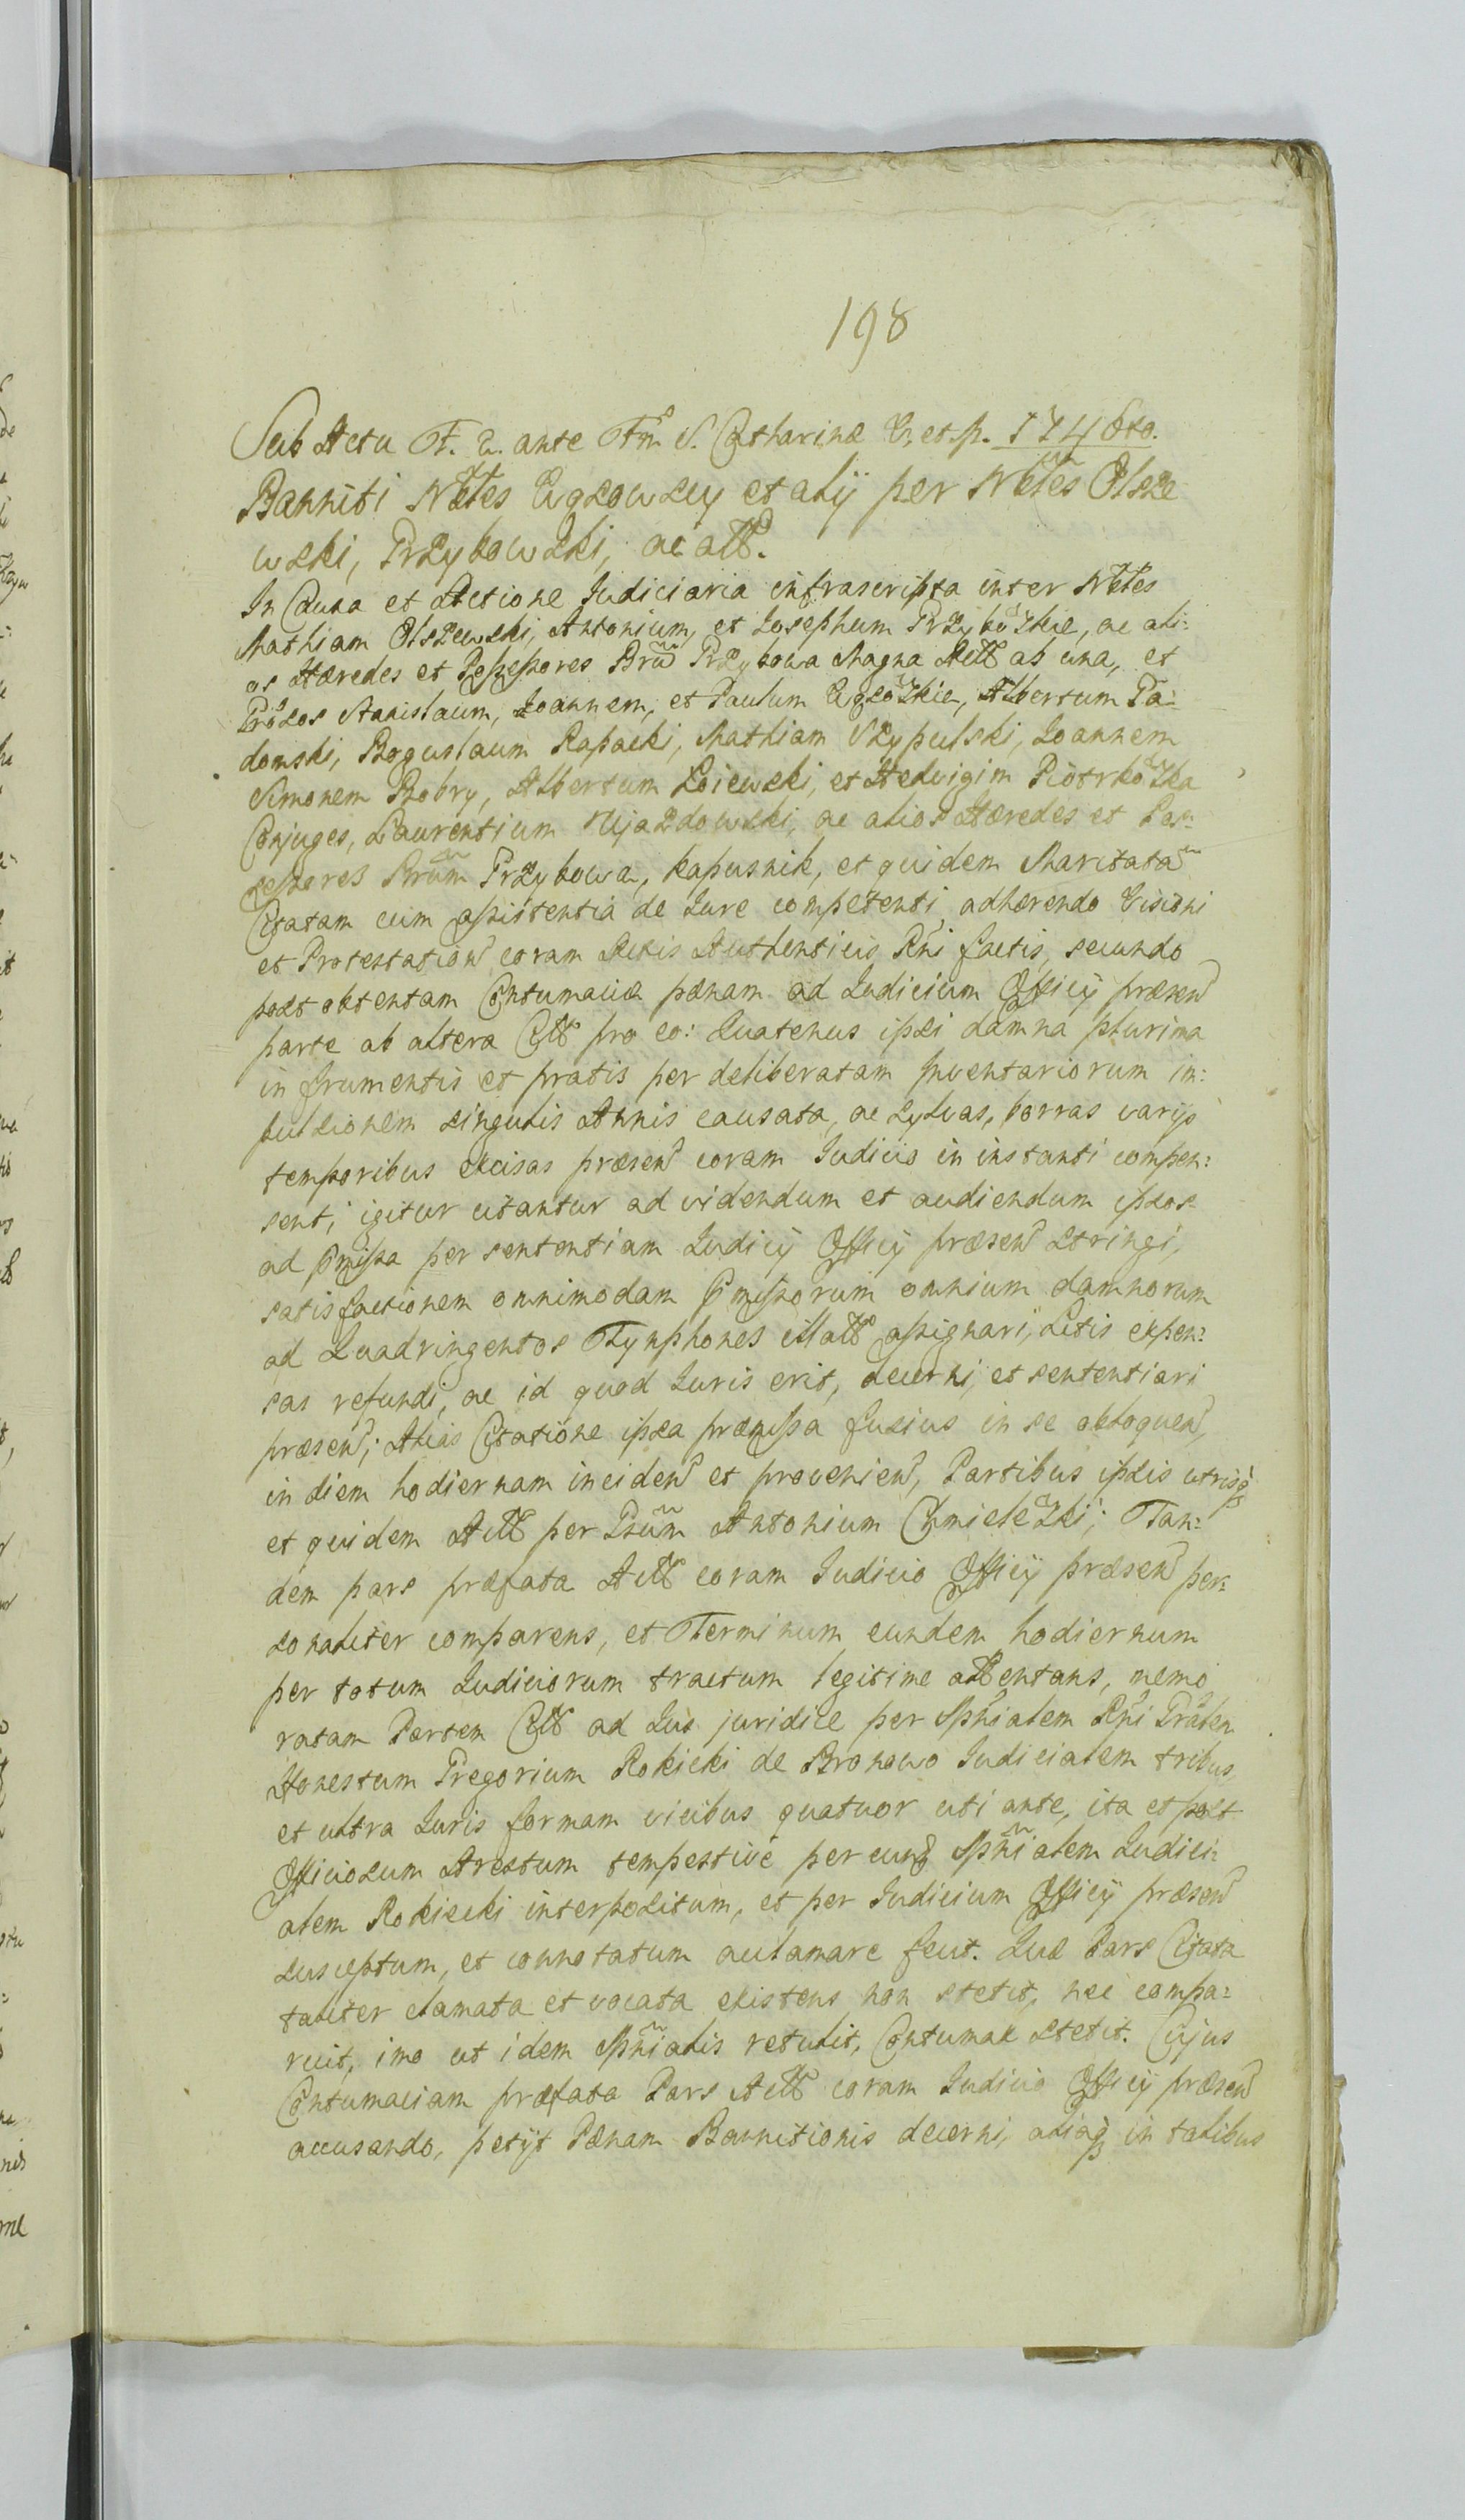 198
Sub Actu F. 2. ante Ftm S. Catharinæ V. et p. 1748vo.
Banniti Nbles Węzłowscy et alij per Nbles Olsze
wski, Przybowski, ac all.
In Causa et Actione Judiciaria infrascripta inter Nbles
Mathiam Olszewski, Antonium, et Josephum Przybowskie, ac ali:
os Hæredes et Possessores Bnrũ Przybowa Magna Act. ab una, et
Stanislaum, Joannem, et Paulum, Albertum Pa:
dowski, Boguslaum Rapacki, Mathiam Szypulski, Joannem
Simonem Bobry, Albertum Łoiewski, et Hedvigim Piotrkowska
Conjuges, Laurentium Ujazdowski, ac alios Hæredes et Pos:
sessores Bnrũm Przybowa, Kapusnik, et quidem Maritatã
Citatam cum assistentia de Jure competenti adhærendo Visioni
et Protestation̄ coram Actis Authenticis Rñi factis, secundo
post obtentam Contumaciæ pænam ad Judicium Officij præsen̄
parte ab altera Citt. pro eo: Quatenus ipsi damna plurima
in frumentis et pratis per deliberatam Inventariorum im:
pulsionem singulis Annis causata, ac sylvas, borras varijs
temporibus excisas præsen̄ coram Judicio in instanti compen:
sent; igitur citantur ad videndum et audiendum ipsos
ad præmissa per sententiam Judicij Officij præsen̄ stringi,
satisfactionem omnimodam præmissorum omnium damnorum
ad Quadringentos Tynphones illatt. assignari, Litis expen:
sas refundi, ac id quod Juris erit, decerni, et sententiari
præsen̄; Alias Citatione ipsa præmissa fusius in se obloquen̄,
in diem hodiernam inciden̄ et provenien̄, Partibus ipsis utrisq
et quidem Act. per Psũm Antonium Chmielewski; Tan:
dem pars præfata Act. coram Judicio Officij præsen̄ per:
sonaliter comparens, et Terminum eundem hodiernum
per totum Judiciorum tractum legitime attentans, memo
ratam Partem Citt. ad Jus juridice per Mñialem Rñi Prñten
Honestum Gregorium Rokicki de Bronowo Judicialem tribus,
et ultra Juris formam vicibus quatuor uti ante, ita et post
Officiosum Arestum tempestive per eund. Mñialem Judici:
alem Rokicki interpositum, et per Judicium Officij præsen̄
susceptum, et connotatum acclamare fecit. Quæ Pars Citata
taliter clamata et vocata existens non stetit, nec compa:
ruit, imo ut idem Mñialis retulit, Contumax stetit. Cujus
Contumaciam præfata Pars Act. coram Judicio Officij præsen̄
accusando, petijt Pænam Bannitionis decerni, aliaq in talibus